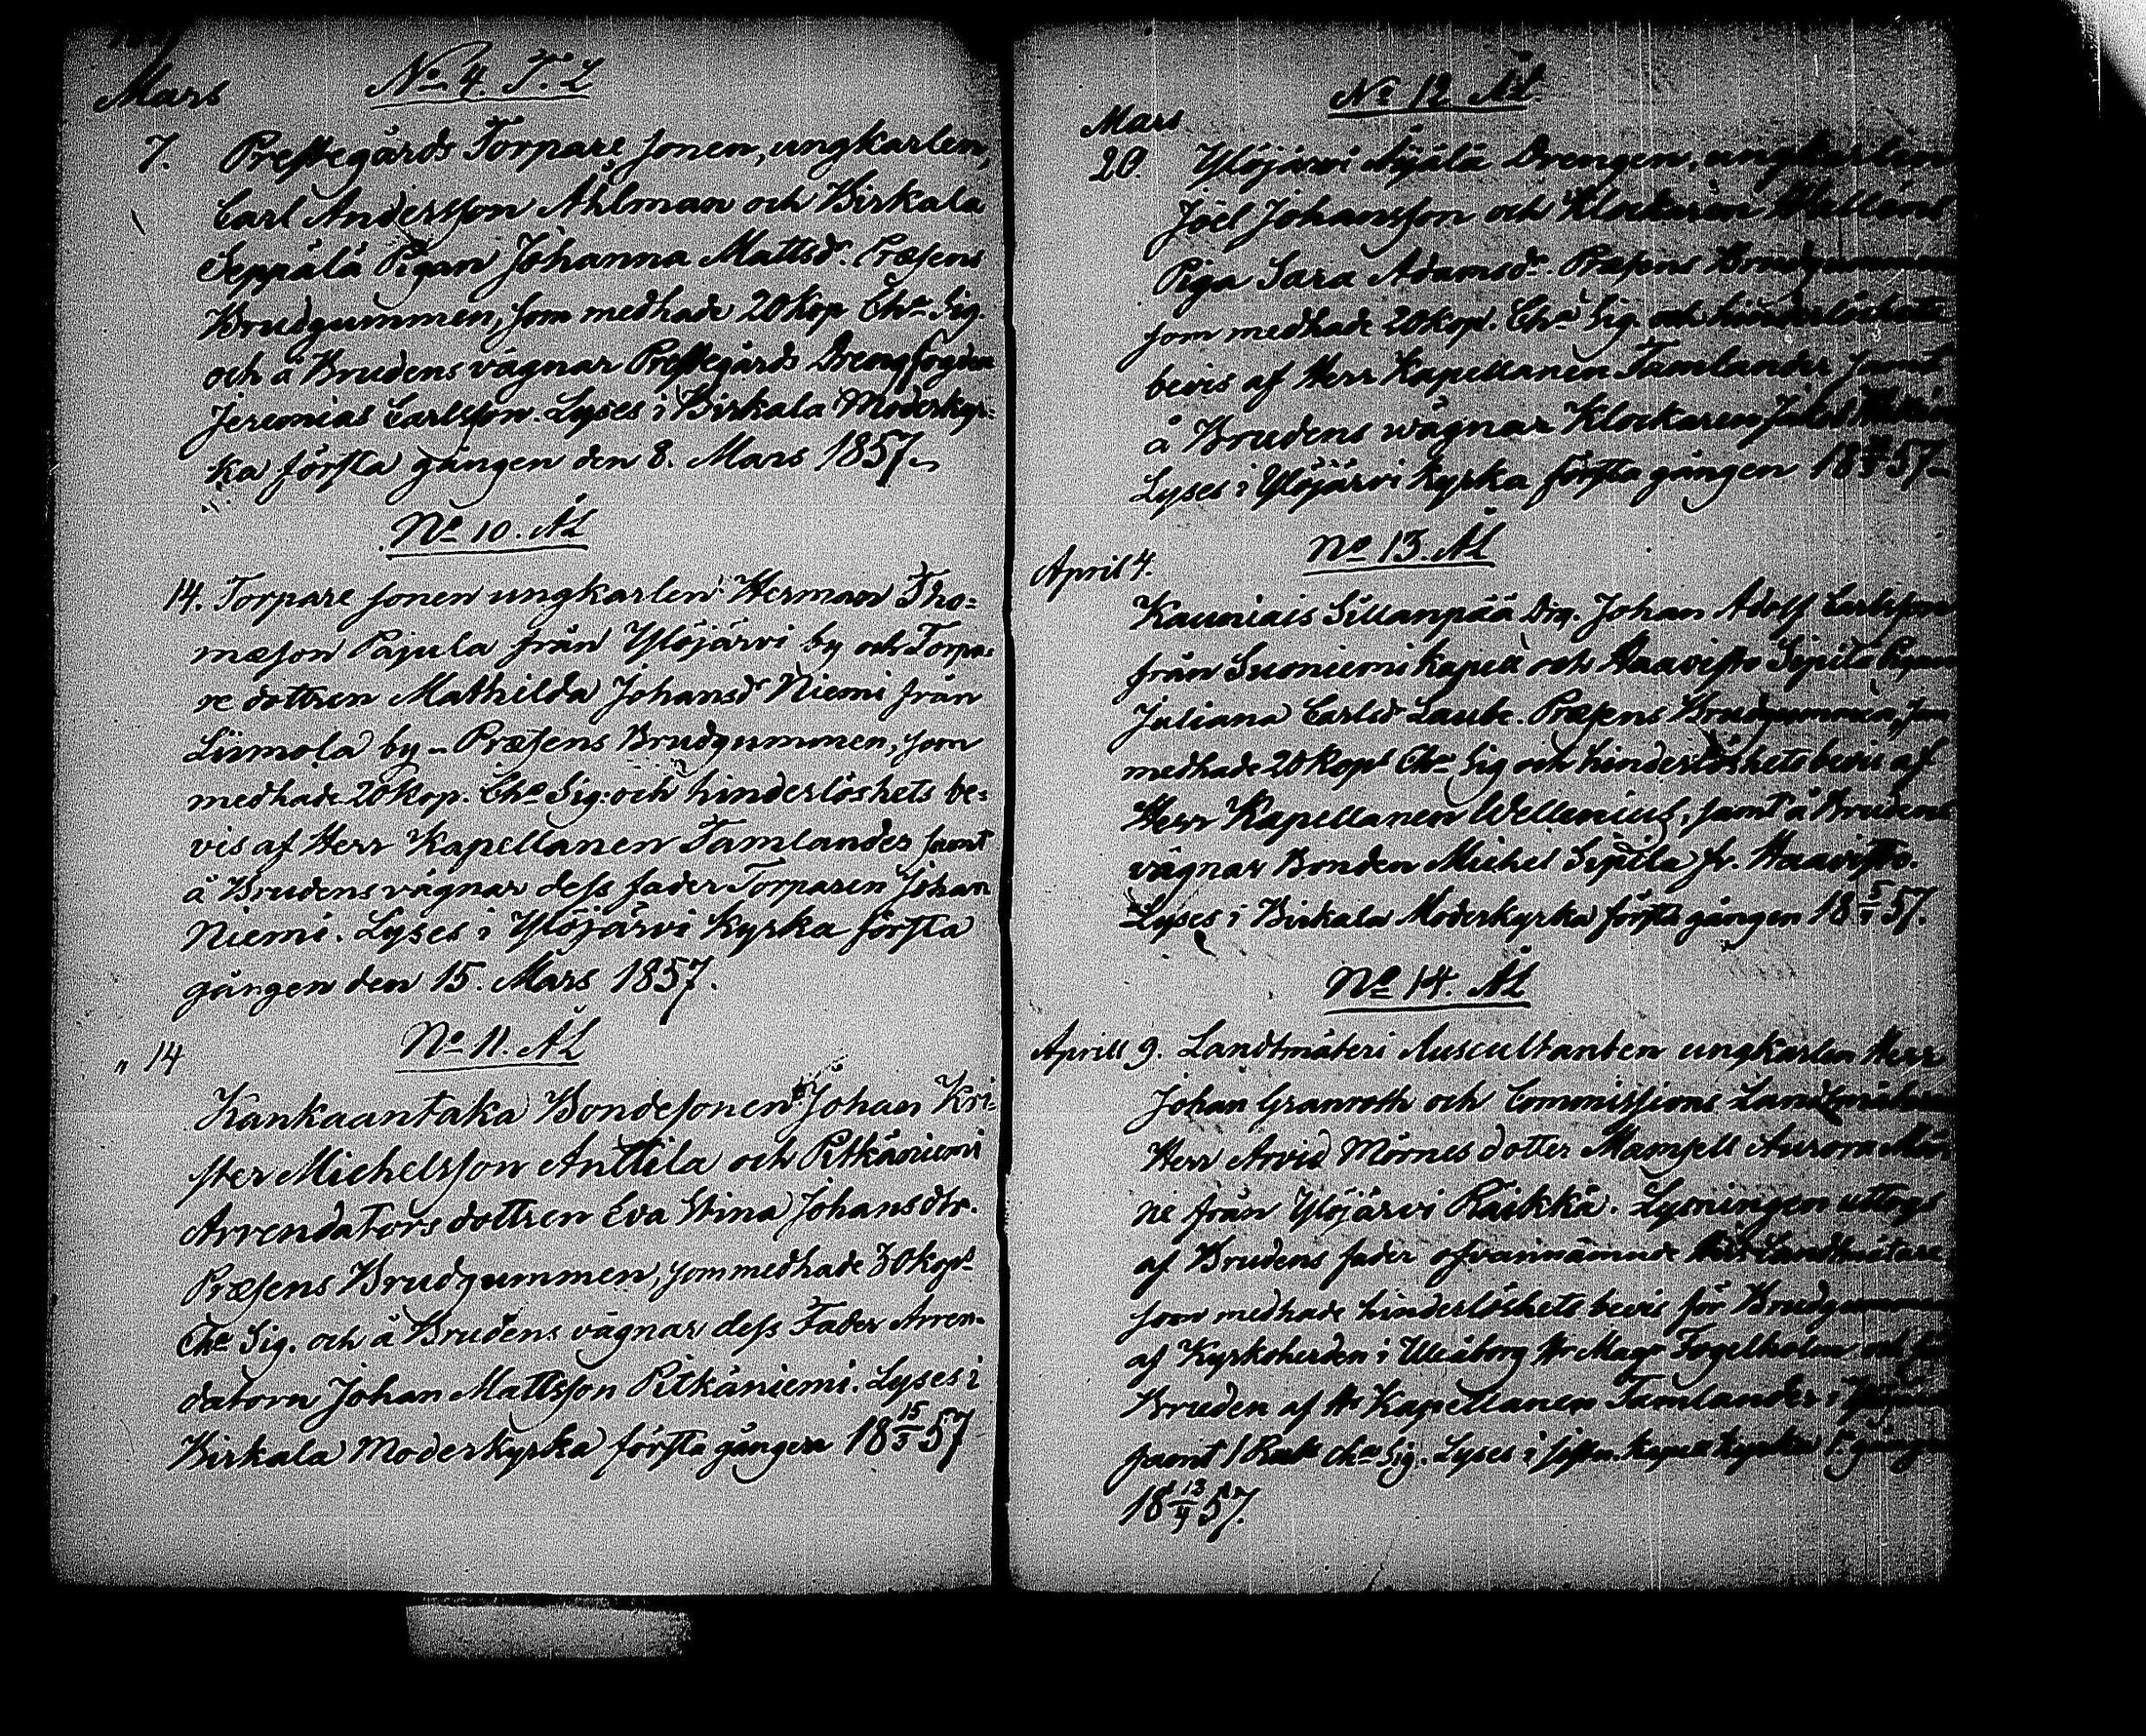 Mars
No 4. T. L
7. Prestegårds Torpare sonen, ungkarlen,
Carl Andersson Åhlman och Birkala
Seppälä Pigan Johanna Mattsdr. Præsens
Brudgummen, som medhade 20 kop Cha. Sig.
och å Brudens vägnar Prestegårds Drengfogden
Jeremias Carlsson. Lyses i Birkala Moderkyr=
ka första gången den 8. Mars 1857.
No 10. ÄL
14. Torpare sonen ungkarlen Herman Tho=
mæson Pajula från Ylöjärvi by och Torpa=
re dottren Mathilda Johansdr Niemi från
Liimola by - Præsens Brudgummen, som
medhade 20 kop. Cha Sig. och hinderlöshets be=
vis af Herr Kapellanen Tamlander samt
å Brudens vägnar dess fader Torparen Johan
Niemi. Lyses i Ylöjärvi Kyrka första
gången den 15. Mars 1857.
No 11. ÄL
" 14
Kankaantaka Bondesonen Johan Kri=
ster Michelsson Anttila och Pitkäniemi
Arrendators dottren Eva Stina Johansdtr.
Præsens Brudgummen, som medhade 30 kop
Cha Sig. och å Brudens vägnar dess Fader Arren=
datorn Johan Mattsson Pitkäniemi. Lyses i
Birkala Moderkyrka första gången 18 15/3 57
No 12 ÄL
Mars
20. Ylöjärvi Äijälä Drengen, ungkarlen
Joel Johansson och Klockaren
Piga Sara Adamsdr. Præsens Brudgummen
som medhade 20 kop. Cha Sig. och hinderlöshets
bevis af Herr Kapellanen Tamlander samt
å Brudens wägnar Klockaren
Lyses i Ylöjärvi Kyrka första gången 18 57
No 13. ÄL
April 4.
Kauniais Sillanpää Drg. Johan Adolf Carlsson
från Suoniemi Kapell och Haavisto Sipilä Pigan
Juliana Carlsd Laube. Præsens Brudgummen, som
medhade 20 kops Cha Sig och hinderlöshets bevis af
Herr Kapellanen Wellenius, samt å Brudens
vägnar Bonden Michel Sipilä fr. Haavisto.
Lyses i Birkala Moderkyrka första gången 18 5/4 57.
No 14. ÄL
Aprill 9. Landtmäteri Auscultanten ungkarlen Herr
Johan Granroth och Commissions Landtmätaren
Herr Arvid Mörnes dotter Mamsell Aurora Mör
ne från Ylöjärvi Räikkä. Lysningen uttogs
af Brudens fader ofvannämnde Landtmätare
som medhade hinderlöshets bevis för Brudgummen
af Kyrkoherden i Uleåborg Hr Magr Fogelholm och för
Bruden af Hr Kapellanen Tamlander i
samt 1 Rub cha Sig. Lyses i Kapell Kyrka gången
18 13/4 57.